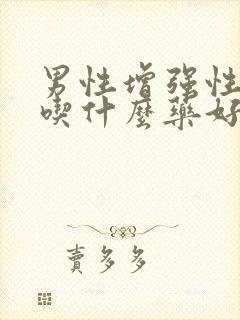 男性增强性
喫什麼藥好
賣多多